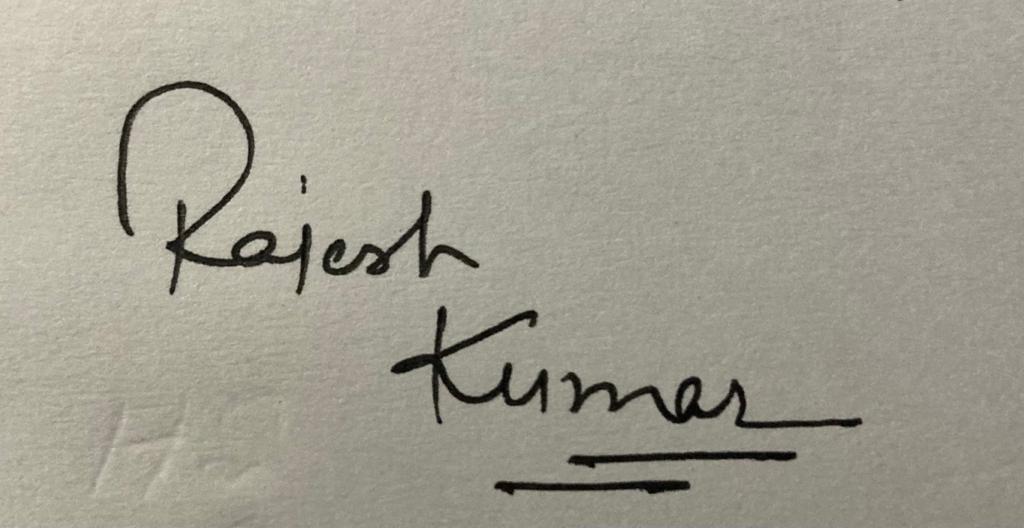 Rajesh
Kumar